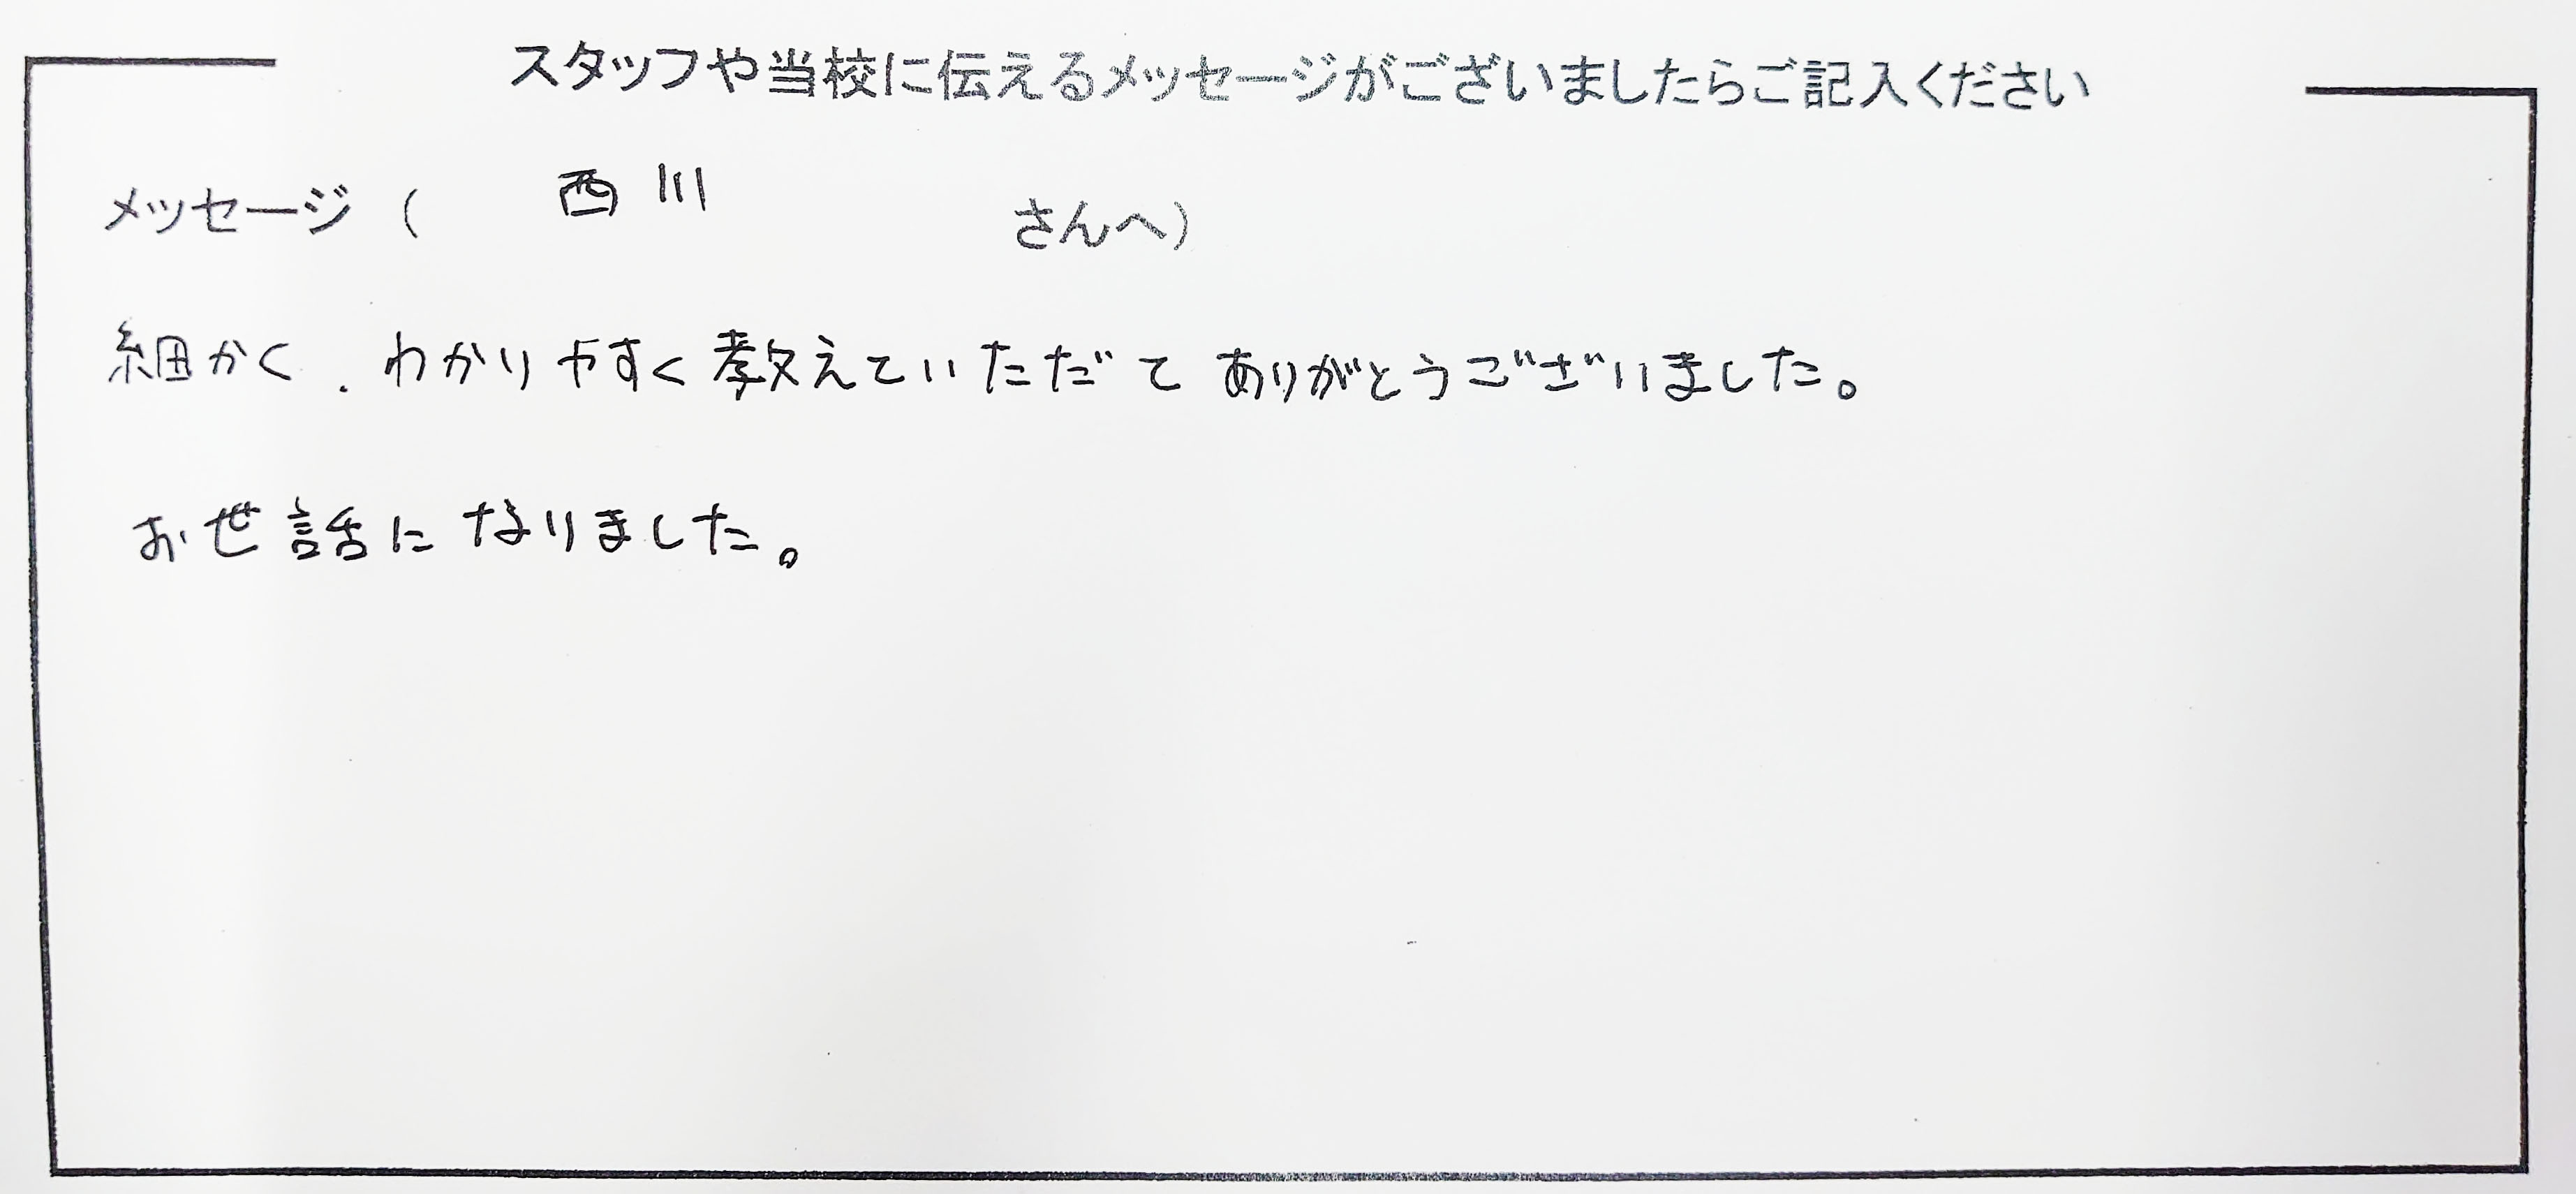 スタッフや当校に伝えるメッセージがございましたらご記入ください
メッセージ（ 西川 さんへ）
細かく、わかりやすく教えていただだて ありがとうございました。
お世話になりました。